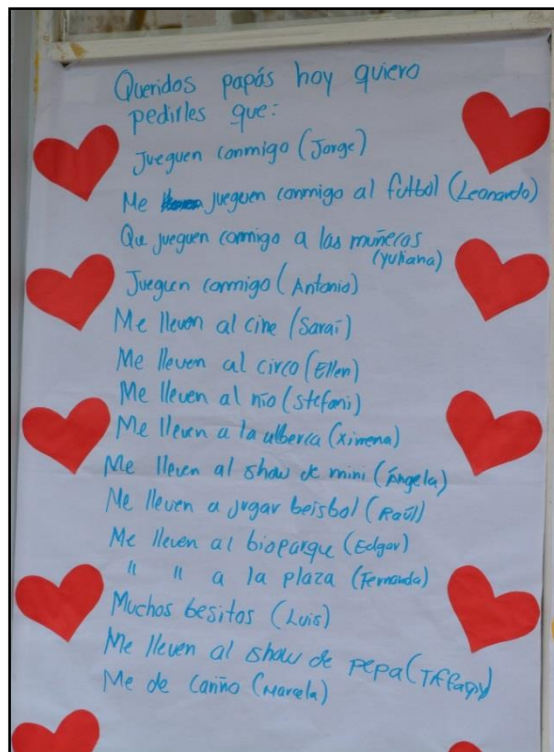 Queridos papás hoy quiero
pedirles que:
Jueguen conmigo (Jorge)
Me jueguen conmigo al futbol (Leonardo)
Qu jueguen conmigo a las muñecas
(Yuliana)
Jueguen conmigo (Antonio)
Me lleven al cine (Saraí)
Me lleven al circo (Ellen)
Me lleven al río (Stefani)
Me lleven a la alberca (Ximena)
Me lleven al show de mini (Ángela)
Me lleven a jugar beisbol (Raúl)
Me lleven al bioparque (Edgar)
" " a la plaza (Fernanda)
Muchos besitos (Luis)
Me lleven al show de pepa (Tiffany)
Me de cariño (Marcela)